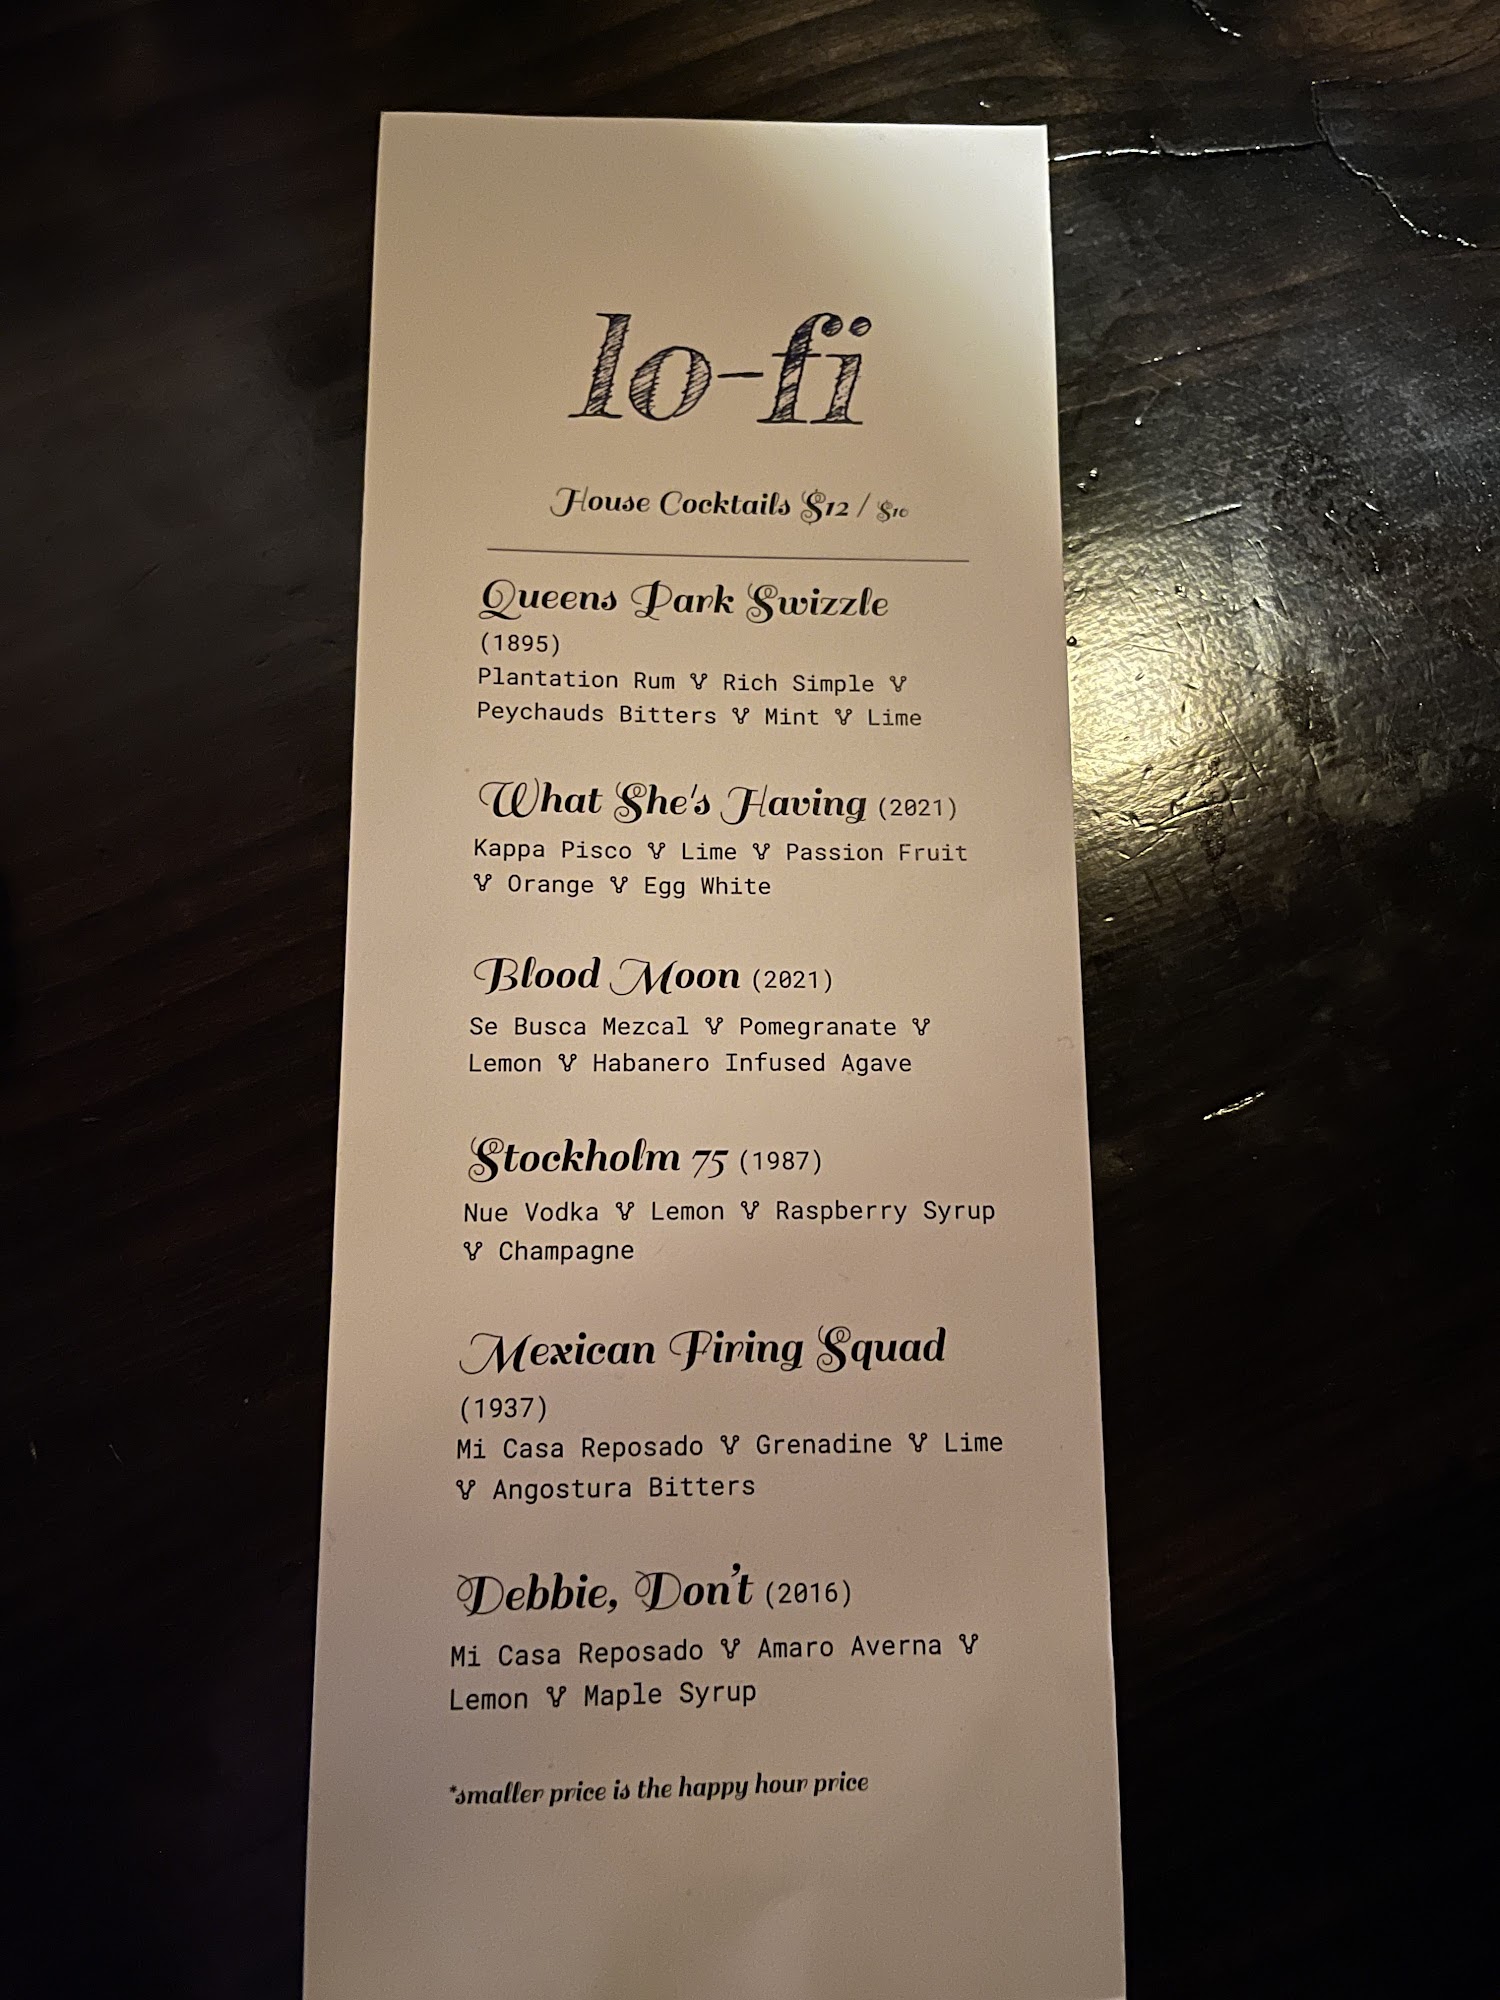 lo-fi
House Cocktails $12 / $10
Queens Park Swizzle
(1895)
Plantation Rum Rich Simple
Peychauds Bitters Mint Lime
What She's Having (2021)
Kappa Pisco Lime Passion Fruit
Orange Egg White
Blood Moon (2021)
Se Busca Mezcal Pomegranate
Lemon Habanero Infused Agave
Stockholm 75 (1987)
Nue Vodka Lemon Raspberry Syrup
Champagne
Mexican Firing Squad
(1937)
Mi Casa Reposado Grenadine Lime
Angostura Bitters
Debbie, Don't (2016)
Mi Casa Reposado Amaro Averna
Lemon Maple Syrup
*smaller price is the happy hour price